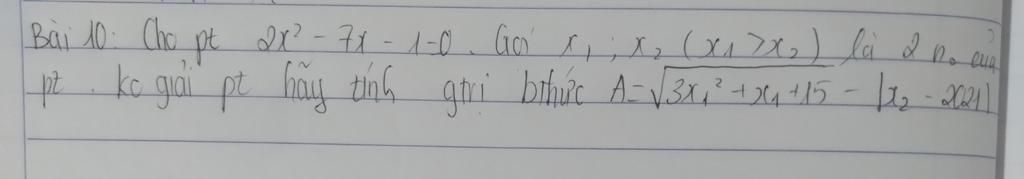 Bài 10: Cho pt 2x² - 7x - 1=0. Gọi x₁; x₂ (x₁>x₂) là 2 n₀ của
pt. ko giải pt hãy tính gtrị bthức A=√(3x₁² + x₁ + 15) - |x₂ - 2021|